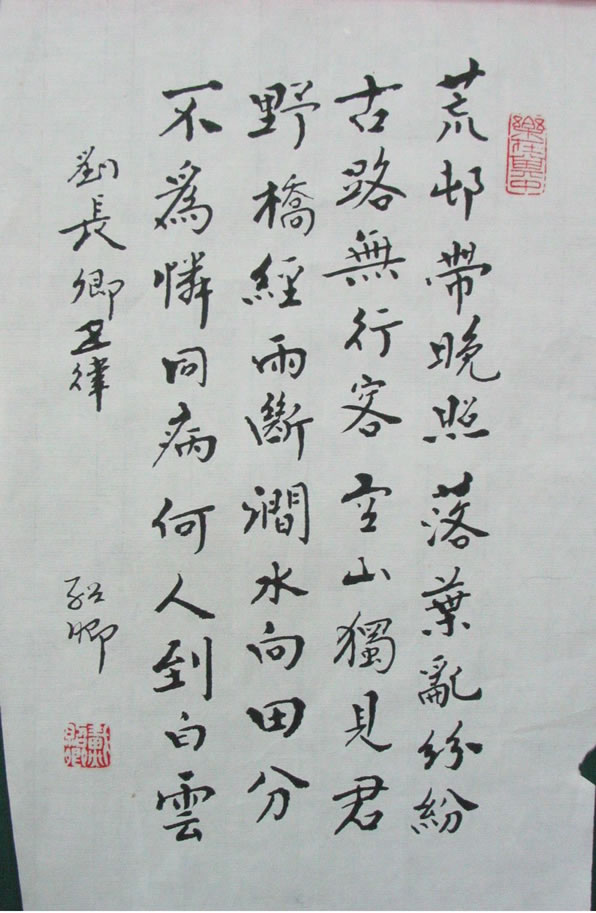 樂在其中
荒邨帶晚照落葉亂紛紛
古路無行客空山獨見君
野橋經雨斷澗水向田分
不為憐同病何人到白雲
劉長卿五律
卿